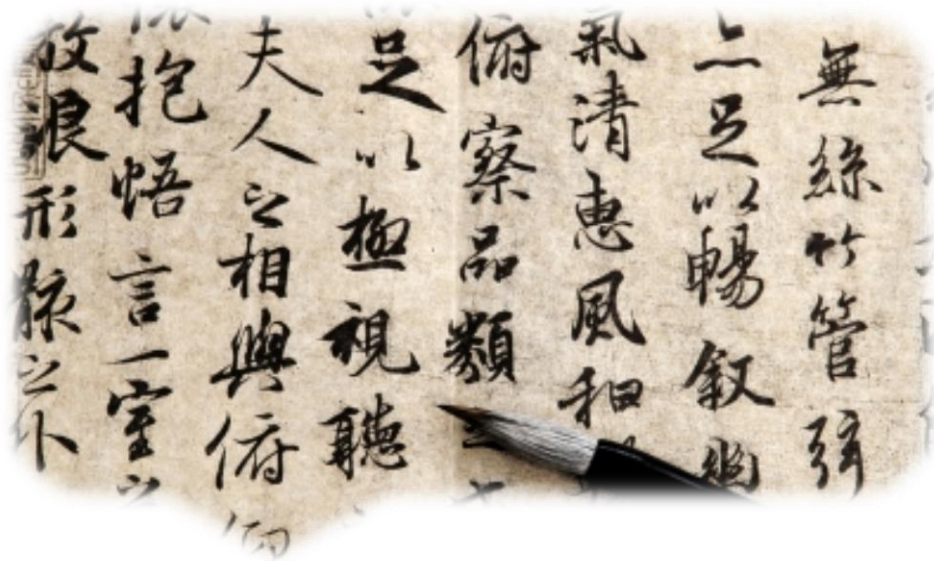 無絲竹管弦
亦足以暢敘幽
氣清惠風和
俯察品類之
足以極視聽
夫人之相與俯仰
抱悟言一室之
放浪形骸之外